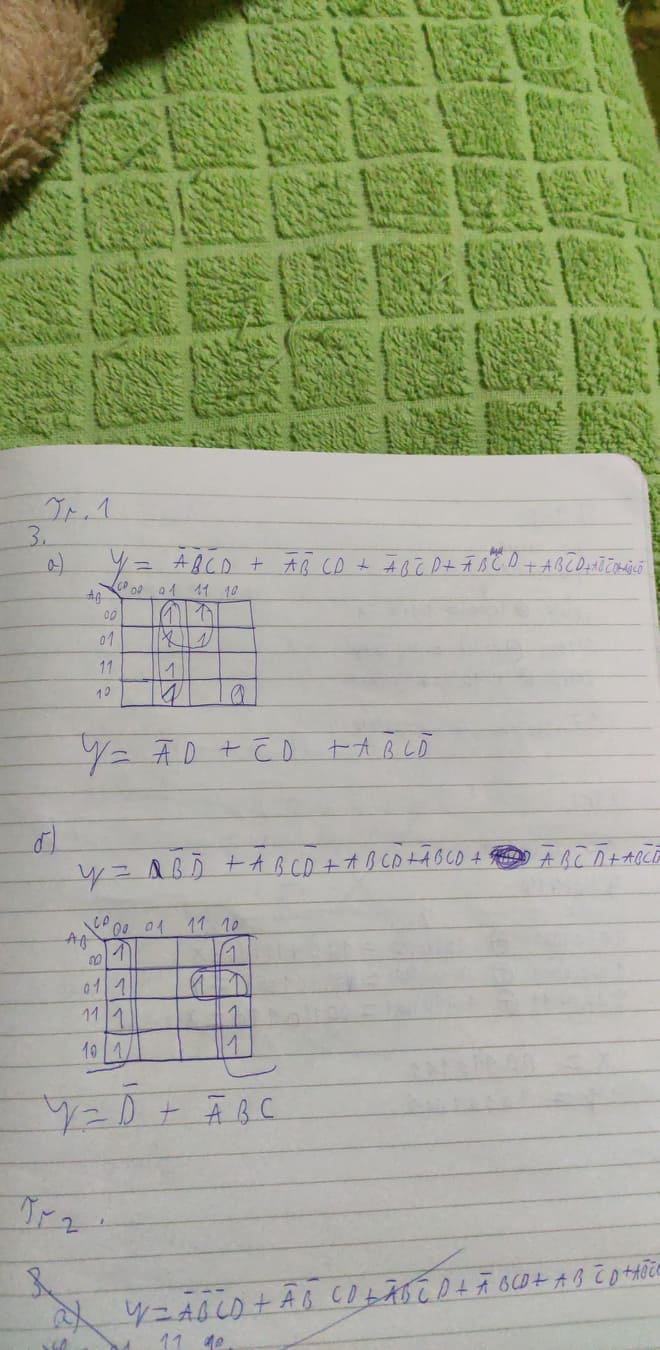 Тr. 1
3.
а) Y = A̅B̅C̅D + A̅B̅CD + A̅BC̅D + A̅BCD + ABC̅D + AB̅C̅D + AB̅CD̅
AB CD 00 01 11 10
00 1 1
01 1 1
11 1
10 1 1
Y = A̅D + C̅D + AB̅CD̅
б)
Y = B̅D̅ + A̅BCD̅ + ABCD̅ + A̅BCD + A̅BC̅D̅ + ABC̅D̅
AB CD 00 01 11 10
00 1 1
01 1 1 1
11 1 1
10 1 1
Y = D̅ + A̅BC
Тr 2.
3.
а) Y = A̅B̅C̅D + A̅B̅CD + A̅BC̅D + A̅BCD + ABC̅D +
11 10